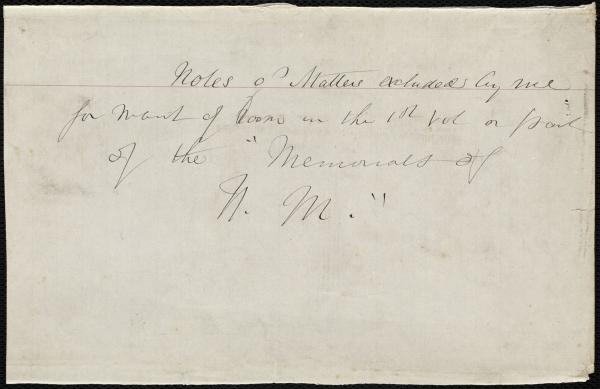 Notes of Matters excluded by me
for want of room in the 1st vol or part
of the "Memorials of
H. M."